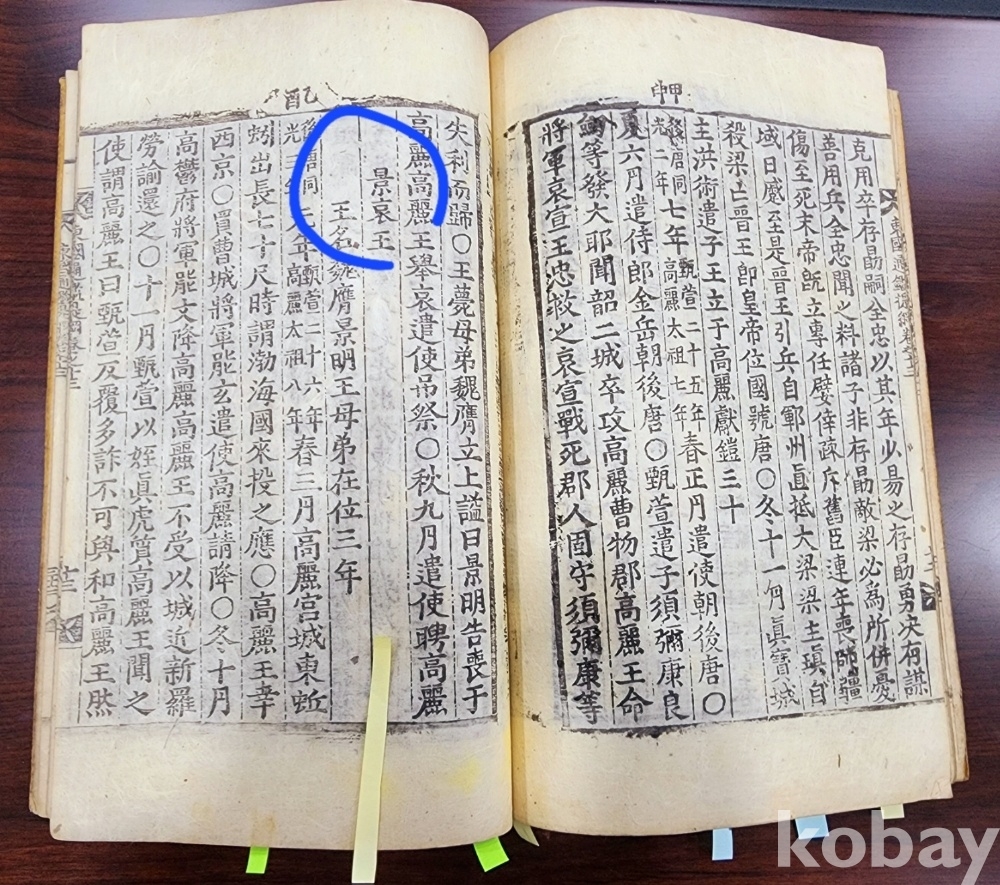 甲申
克用卒存勗嗣全忠以其年少易之存勗勇决有謀
善用兵全忠聞之料諸子非存勗敵梁必爲所併憂
傷至死末帝旣立專任嬖倖疎斥舊臣連年喪師疆
域日蹙至是晉王引兵自鄆州直抵大梁梁主瑱自
殺梁亡晉王卽皇帝位國號唐〇冬十一月眞寶城
主洪術遣子王立于高麗獻鎧三十
後唐同光二年七年甄萱二十五年高麗太祖七年春正月遣使朝後唐〇
夏六月遣侍郎金岳朝後唐〇甄萱遣子須彌康良
劒等發大耶聞韶二城卒攻高麗曹物郡高麗王命
將軍哀宣王忠救之哀宣戰死郡人固守須彌康等
乙酉
失利而歸〇王薨母弟魏膺立上謚曰景明告喪于
高麗高麗王舉哀遣使吊祭〇秋九月遣使聘高麗
景哀王
王名魏膺景明王母弟在位三年
後唐同光三年元年甄萱二十六年高麗太祖八年春三月高麗宮城東蚯
蚓出長七十尺時謂渤海國來投之應〇高麗王幸
西京〇買曹城將軍能玄遣使高麗請降〇冬十月
高鬱府將軍能文降高麗高麗王不受以城近新羅
勞諭還之〇十一月甄萱以姪眞虎質高麗王聞之
使謂高麗王曰甄萱反覆多詐不可與和高麗王然
kobay